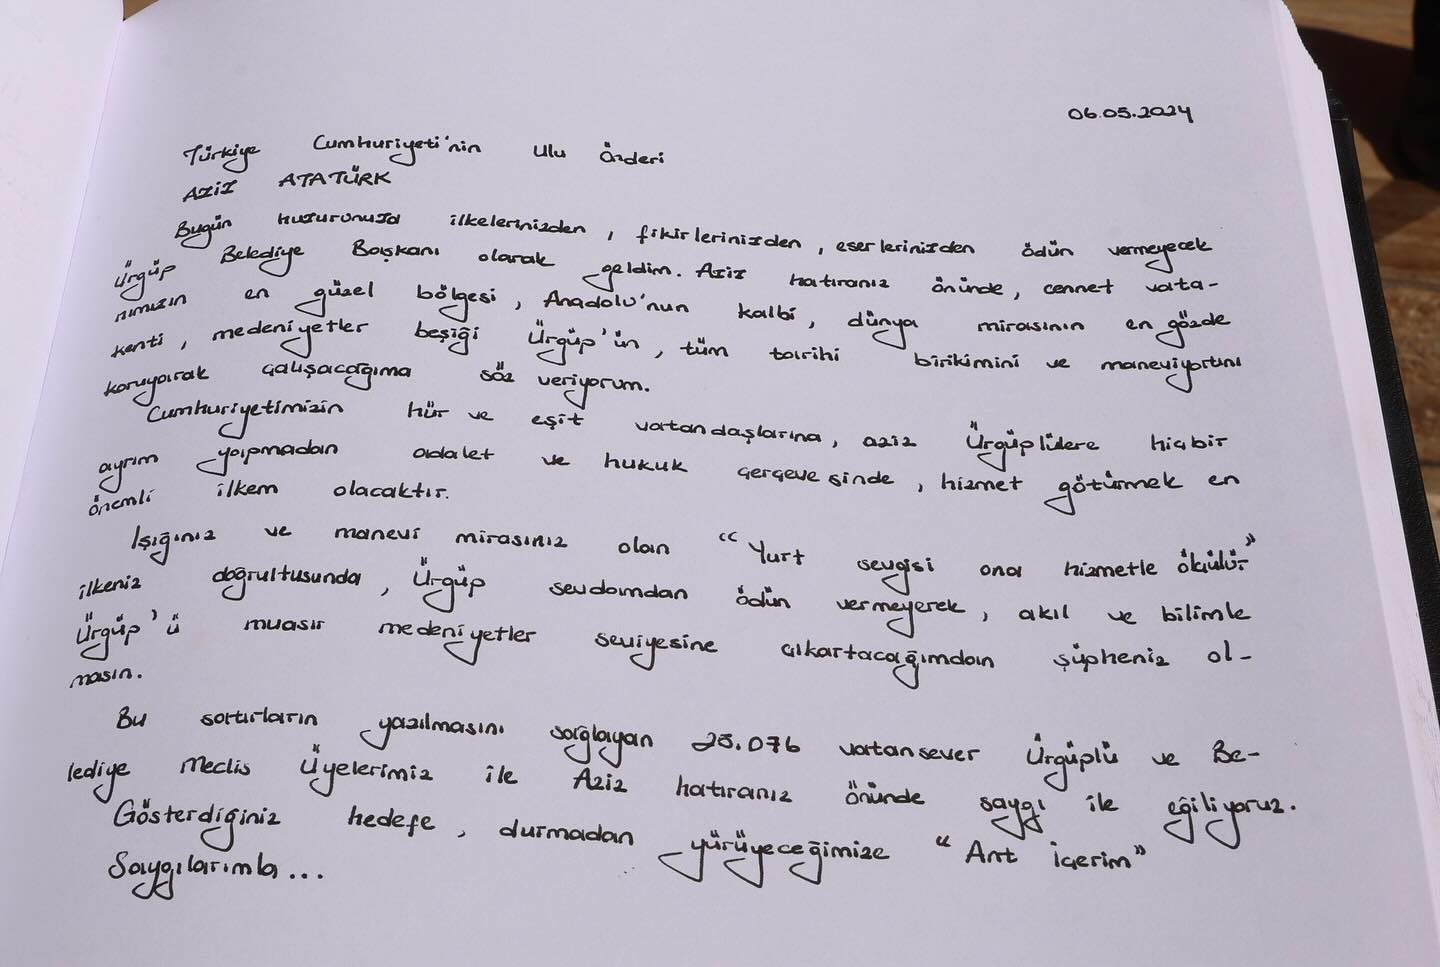 06.05.2024
Türkiye Cumhuriyeti'nin Ulu Önderi
AZİZ ATATÜRK
Bugün huzurunuzda ilkelerinizden, fikirlerinizden, eserlerinizden ödün vermeyecek
Ürgüp Belediye Başkanı olarak geldim. Aziz hatıranız önünde, cennet vata-
nımızın en güzel bölgesi, Anadolu'nun kalbi, dünya mirasının en gözde
kenti, medeniyetler beşiği Ürgüp'ün, tüm tarihi birikimini ve maneviyatını
koruyarak çalışacağıma söz veriyorum.
Cumhuriyetimizin hür ve eşit vatandaşlarına, aziz Ürgüplülere hiçbir
ayrım yapmadan adalet ve hukuk çerçevesinde, hizmet götürmek en
önemli ilkem olacaktır.
Işığınız ve manevi mirasınız olan "Yurt sevgisi ona hizmetle ölçülür"
ilkeniz doğrultusunda, Ürgüp sevdamdan ödün vermeyerek, akıl ve bilimle
Ürgüp'ü muasır medeniyetler seviyesine çıkartacağımdan şüpheniz ol-
masın.
Bu satırların yazılmasını sağlayan 25.076 vatansever Ürgüplü ve Be-
lediye Meclis Üyelerimiz ile Aziz hatıranız önünde saygı ile eğiliyoruz.
Gösterdiğiniz hedefe, durmadan yürüyeceğimize "Ant İçerim"
Saygılarımla...